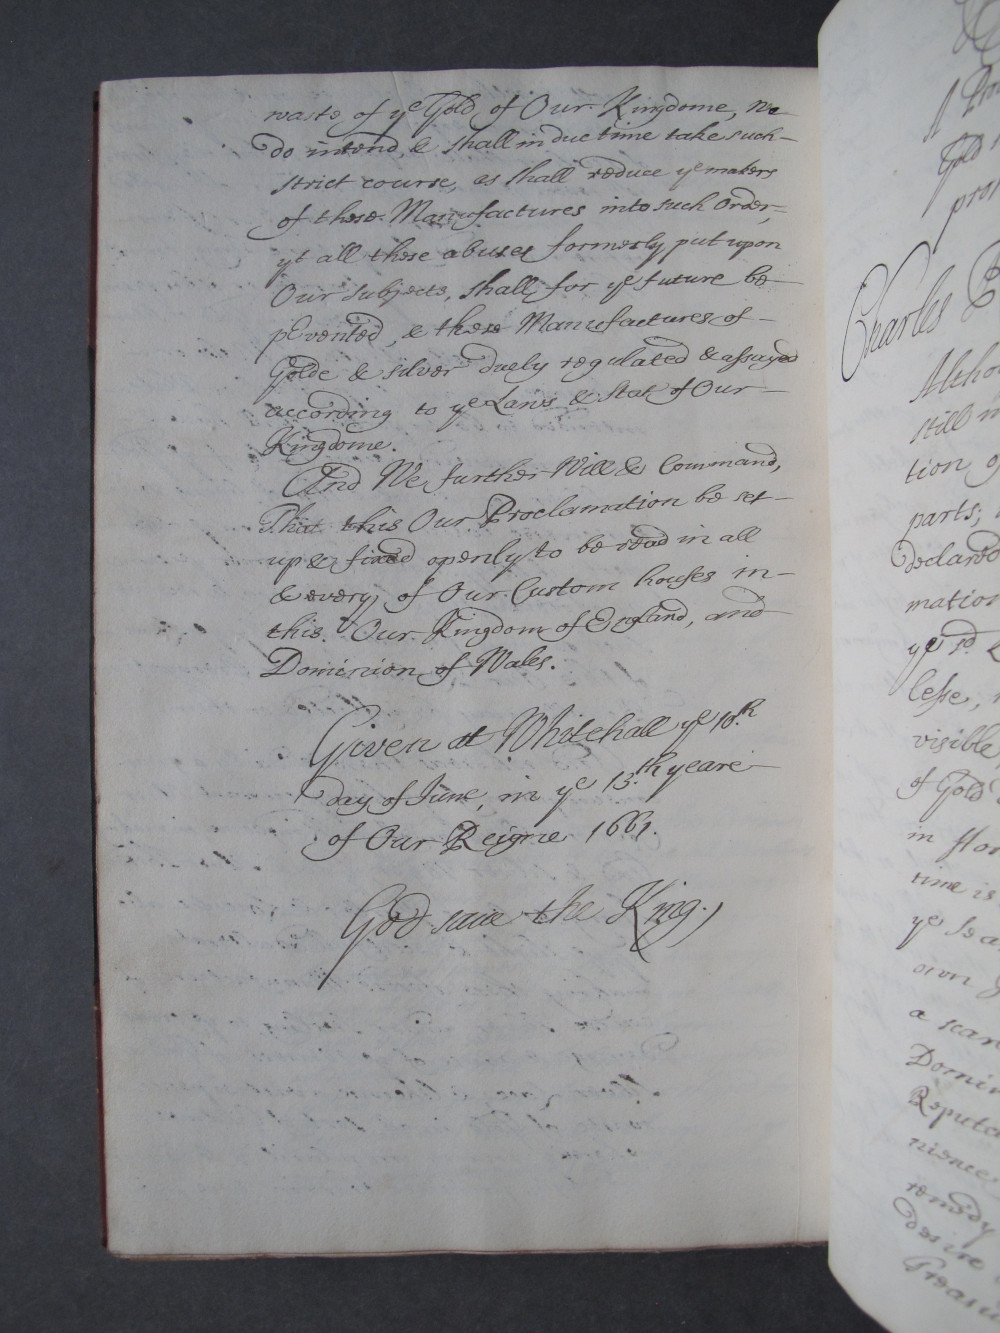 waste of ye Gold of Our Kingdome, We
do intend, & shall in due time take such
strict course, as shall reduce ye makers
of these Manufactures into such Order,
yt all these abuses formerly put upon
Our subjects, shall for ye future be
pEvented, & these Manufactures of
Golde & silver duely regulated & assayed
according to ye Laws & Stat of Our
Kingdome.
And We further Will & Command,
That this Our Proclamation be set
up & fixed openly to be read in all
& every of Our Custom houses in
this Our Kingdom of England, and
Dominion of Wales.
Given at Whitehall ye 10th
day of June, in ye 13th yeare
of Our Reigne 1661.
God save the King.
Gold
Charles
Altho
still
tion
parts;
declared
mation
ye sd
lesse,
visible
of Gold
in
time is
ye
own
a scar
Domin
Reputa
nience
remedy
desire
Treasu